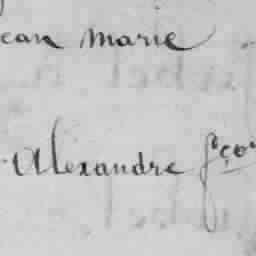 ean Marie
Alexandre fçoi